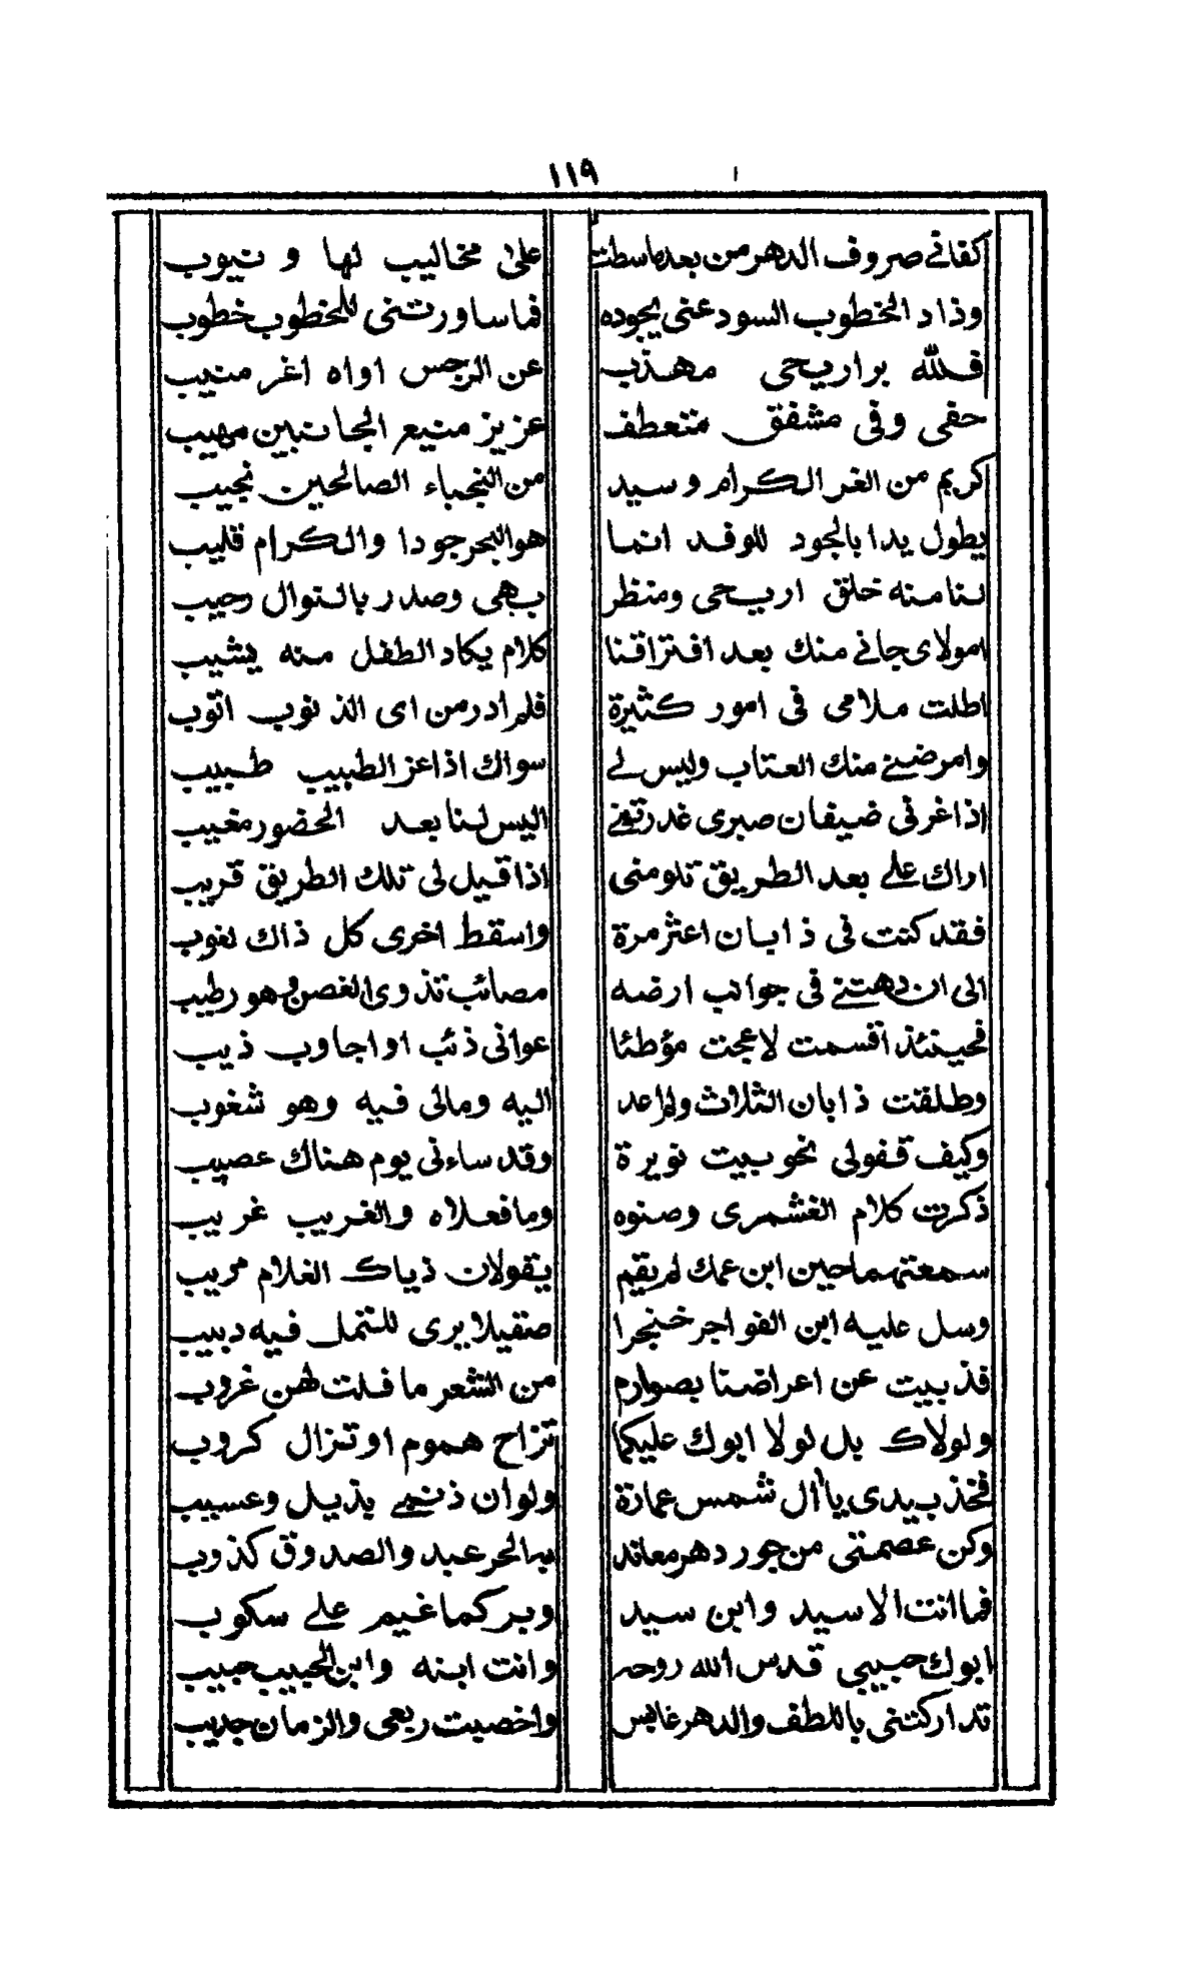 ١١٩
كفاني صروف الدهر من بعد ما سطت على مخاليب لها و نيوب
وذاد الخطوب السود عنى بجوده فما ساورتنى للخطوب خطوب
فلله بر اريحى مهذب عن الرجس اواه اغر منيب
حفى وفى مشفق متعطف عزيز منيع الجانبين مهيب
كريم من الغر الكرام وسيد من النجباء الصالحين نجيب
يطول يدا بالجود للوفد انما هو البحر جودا والكرام قليب
لنا منه خلق اريحى ومنظر بهى وصدر بالنوال رحيب
امولاى جاني منك بعد افتراقنا كلام يكاد الطفل منه يشيب
اطلت ملامى فى امور كثيرة فلم ادر من اى الذنوب اتوب
وامرضني منك العتاب وليس لي سواك اذا عز الطبيب طبيب
اذا غرنى ضيفان صبرى غدرتني اليس لنا بعد الحضور مغيب
اراك علي بعد الطريق تلومنى اذا قيل لى تلك الطريق قريب
فقد كنت فى ذابان اعثر مرة واسقط اخرى كل ذاك لغوب
الى ان دهتني فى جوانب ارضه مصائب تذوى الغصن وهو رطيب
فحينئذ اقسمت لا عجت مؤطئا عوانى ذئب او اجاوب ذيب
وطلقت ذابان الثلاث ولم اعد اليه ومالى فيه وهو شغوب
وكيف قفولى نحو بيت نويرة وقد ساءنى يوم هناك عصيب
ذكرت كلام الغشمرى وصنوه وما فعلاه والغريب غريب
سمعتهما حين ابن عمك لم يقم يقولان ذياك الغلام مريب
وسل عليه ابن الفواجر خنجرا صقيلا يرى للنمل فيه دبيب
فذببت عن اعراضنا بصوارم من الشعر ما فلت لهن غروب
ولولاك بل لولا ابوك عليكما تزاح هموم او تزال كروب
فخذ بيدى يا أل شمس عمارة ولو ان ذنبي يذبل وعسيب
وكن عصمتى من جور دهر معاند به الحر عبد والصدوق كذوب
فما انت الا سيد وابن سيد وبر كما غيم علي سكوب
ابوك حبيبى قدس الله روحه وانت ابنه وابن الحبيب حبيب
تداركتنى باللطف والدهر عابس واخصبت ربعى والزمان جديب